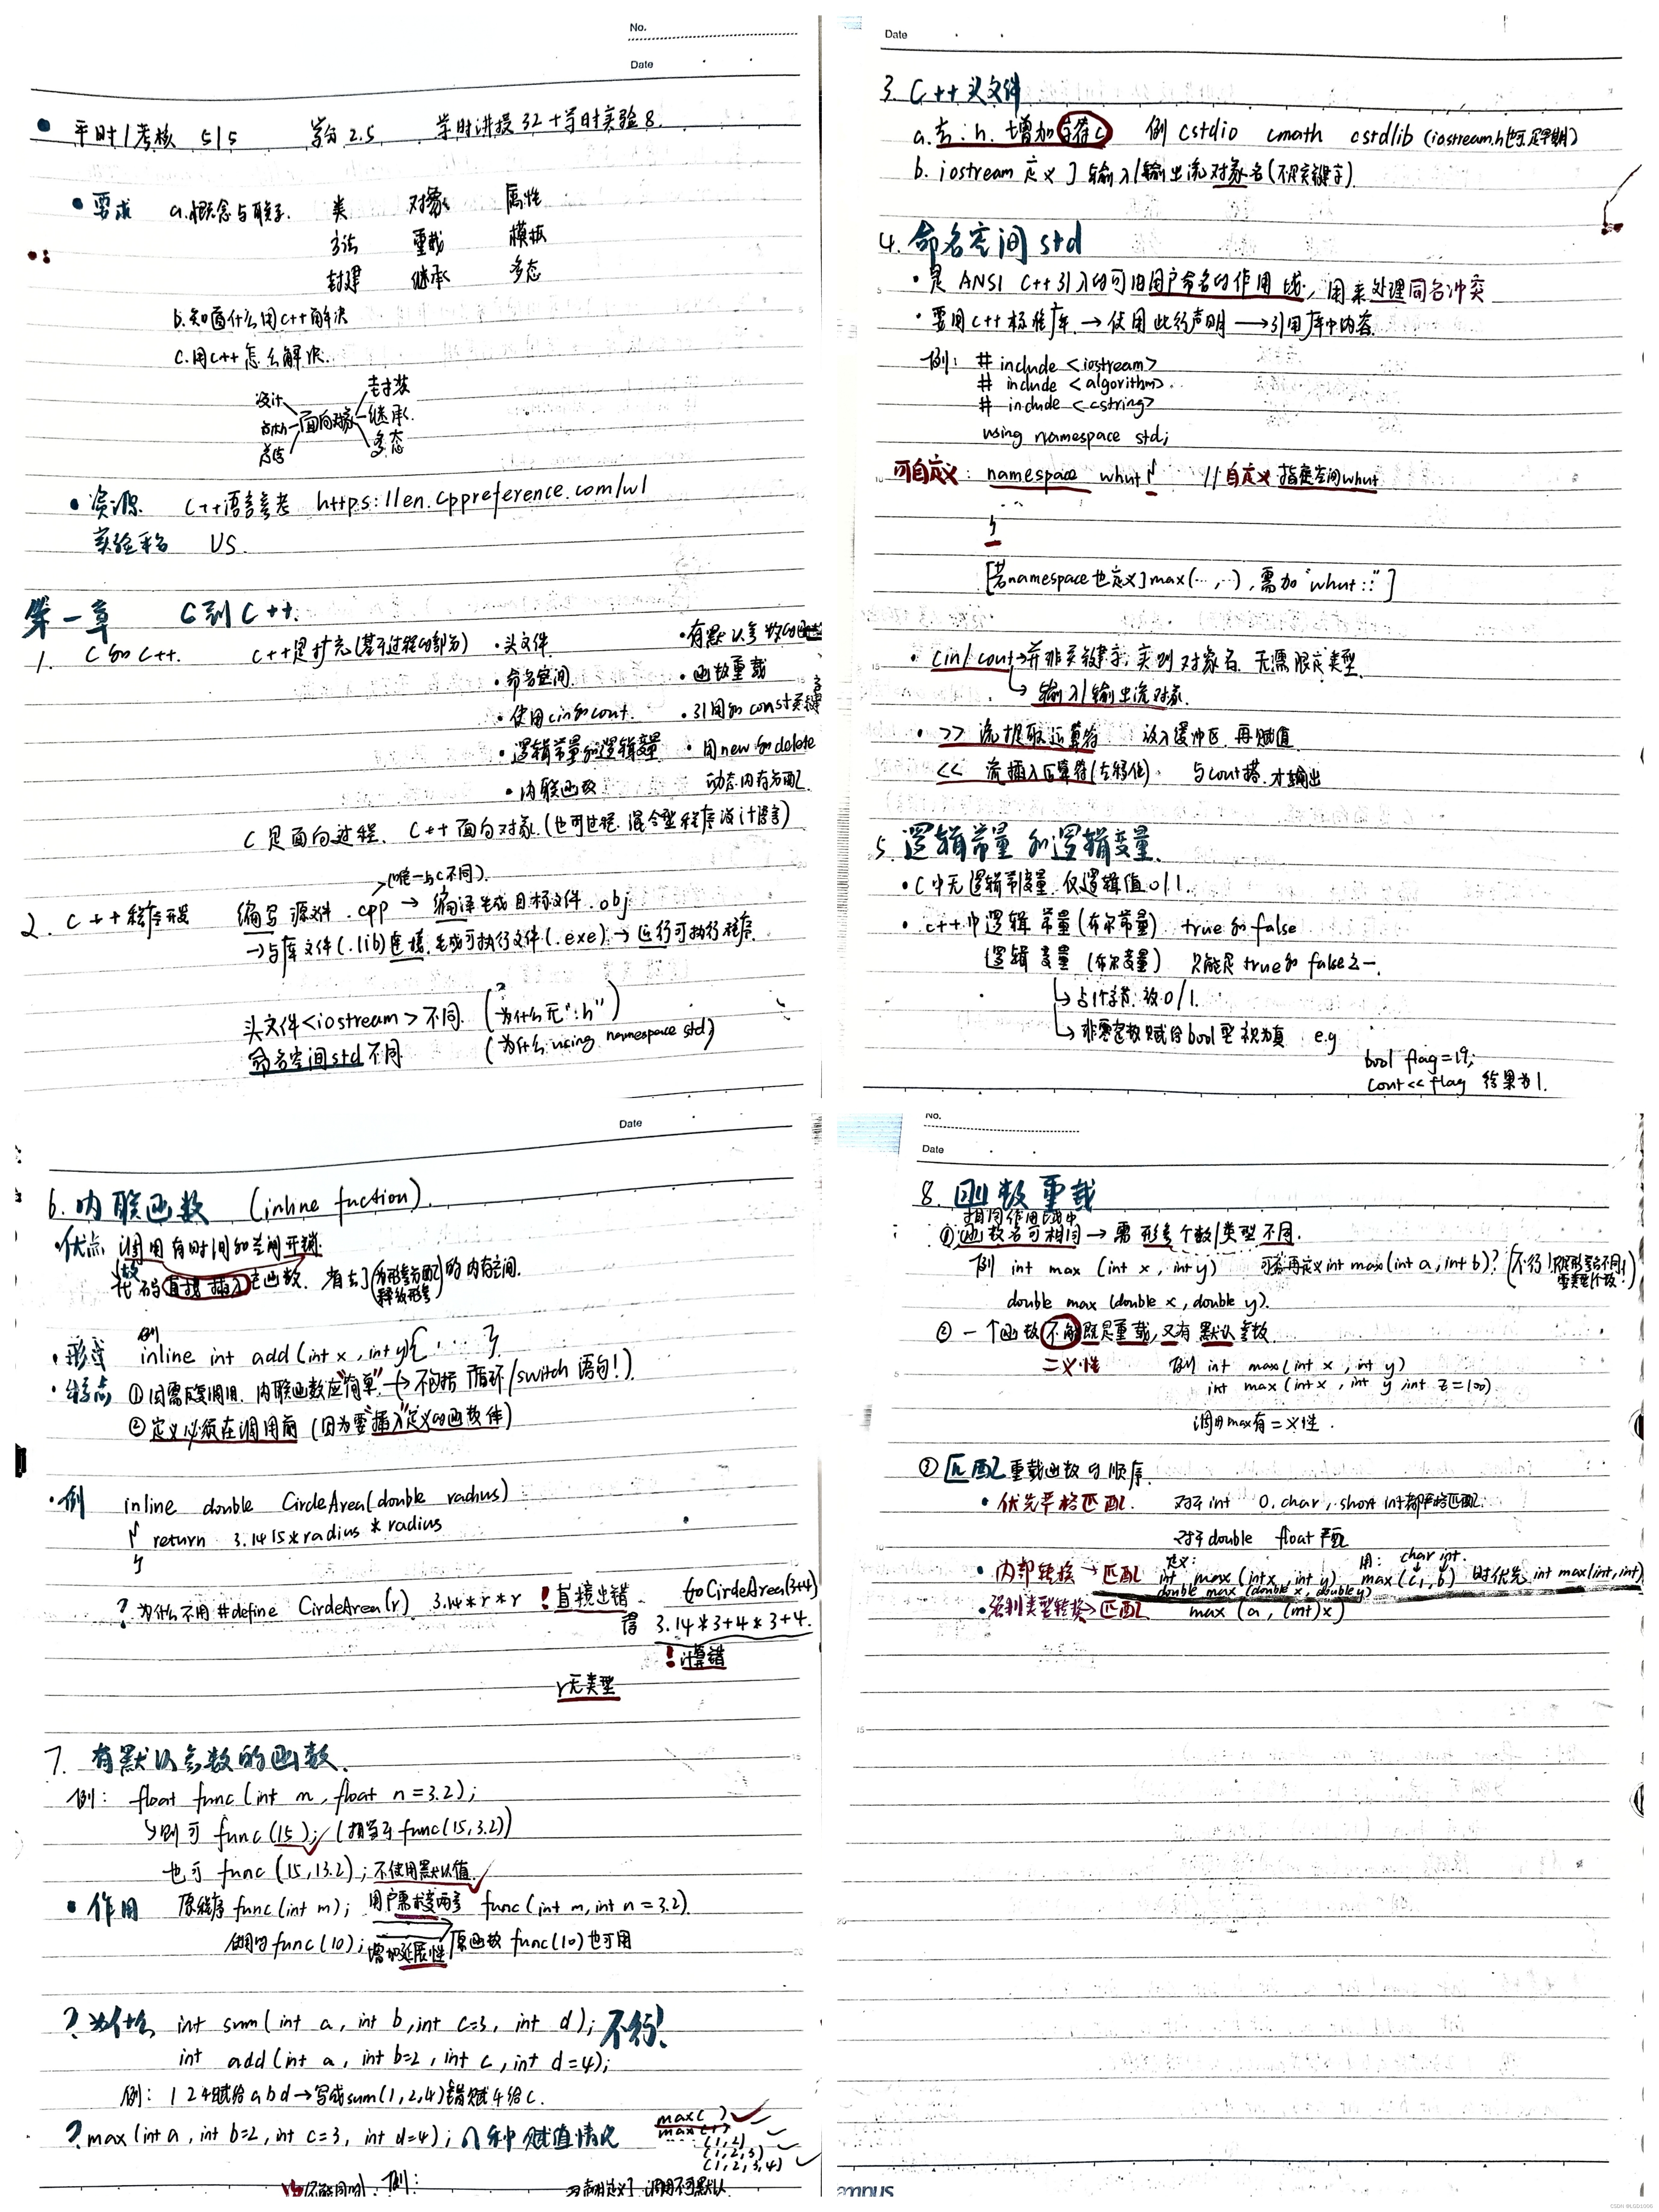 No.
Date
平时/考核 5/5 学分 2.5 学时讲授 32 + 学时实验 8.
• 要求 a.概念与联系. 类 对象 属性
方法 重载 模板
封建 继承 多态
b.知道什么用C++解决
C.用C++怎么解决.
设计 封装
面向对象 继承.
多态
• 资源. C++语言参考 https://en.cppreference.com/w/
实验平台 VS.
第一章 C到C++.
1. C和C++. C++是扩充(基于过程的部分) •头文件 •有默认参数的函数
•命名空间 •函数重载
•使用cin和cout. •引用和const关键字
•逻辑常量和逻辑变量 •用new和delete
•内联函数 动态内存分配
C是面向过程. C++面向对象.(也可过程. 混合型程序设计语言)
(唯一与C不同).
2. C++程序开发 编写源文件.cpp → 编译生成目标文件.obj
→与库文件(.lib)连接.生成可执行文件(.exe).→运行可执行程序.
头文件<iostream>不同. (为什么无".h")
命名空间std不同 (为什么using namespace std)
Date
3. C++头文件
a.去.h. 增加字符c 例 cstdio cmath cstdlib (iostream.h也可.是早期)
b. iostream 定义了输入/输出流对象名(不是关键字)
4. 命名空间std
• 是 ANSI C++引入的可由用户命名的作用域, 用来处理同名冲突
• 要用C++标准库 → 使用此行声明 → 引用库中内容.
例: # include <iostream>
# include <algorithm>
# include <cstring>
using namespace std;
可自定义: namespace whut { //自定义 指定空间whut
...
}
[若namespace也定义了max(…,…),需加"whut::"]
• cin/cout→并非关键字,实则对象名 无需限定类型.
↳输入/输出流对象.
• >> 流提取运算符 放入缓冲区.再赋值
<< 流插入运算符(左移位). 与cout搭.才输出
5. 逻辑常量和逻辑变量.
• C中无逻辑常/变量.仅逻辑值0/1.
• C++中逻辑常量(布尔常量) true和false
逻辑变量 (布尔变量) 只能是true和false之一.
↳占1个字节.放0/1.
↳非零定数赋给bool型 视为真 e.g
bool flag=19;
cout<<flag 结果为1.
Date
6. 内联函数 (inline fuction).
•优点 调用有时间和空间开销.
故
代码直接插入主函数. 省去了(为形参分配 释放形参)的内存空间.
例
• 形式 inline int add(int x, int y){ ... }
• 特点 ①因需反复调用. 内联函数应"简单" → 不包括(循环/switch语句!).
②定义必须在调用前 (因为要"插入"定义的函数体)
•例 inline double CircleArea(double radius)
{ return 3.1415*radius * radius
}
? 为什么不用 #define CircleArea(r) 3.14*r*r !直接出错. to CircleArea(3+4)
得 3.14*3+4*3+4.
!计算错
r无类型
7. 有默认参数的函数.
例: float func(int m, float n=3.2);
↳则可 func(15); (相当于func(15,3.2))
也可 func(15,13.2); 不使用默认值
• 作用 原程序func(int m); 用户需求变两参 func(int m,int n=3.2).
使用的func(10); 增加延展性 原函数func(10)也可用
? 为什么 int sum(int a, int b,int c=3, int d); 不行!
int add(int a, int b=2, int c, int d=4);
例: 1 2 4赋给abd→写成sum(1,2,4)错赋4给c.
? max(int a, int b=2, int c=3, int d=4); 几种赋值情况
max( )
max(1)
(1,2)
(1,2,3)
(1,2,3,4)
例:
No.
Date
8. 函数重载
相同作用域中
①函数名可相同→需形参个数/类型不同.
例 int max (int x, int y) 可否再定义int max(int a,int b)?
double max (double x, double y).
②一个函数不能既是重载,又有默认参数
二义性 例 int max(int x, int y)
int max(int x, int y, int z=100)
调用max有二义性.
③匹配重载函数的顺序.
• 优先严格匹配. 对于int 0.char, short int都严格匹配.
对于double float严配
• 内部转换→匹配 定义: int max (int x, int y) 用: char int. max(c, b) 时优先int max(int,int)
double max (double x, double y)
•强制类型转换→匹配 max (a, (int)x)